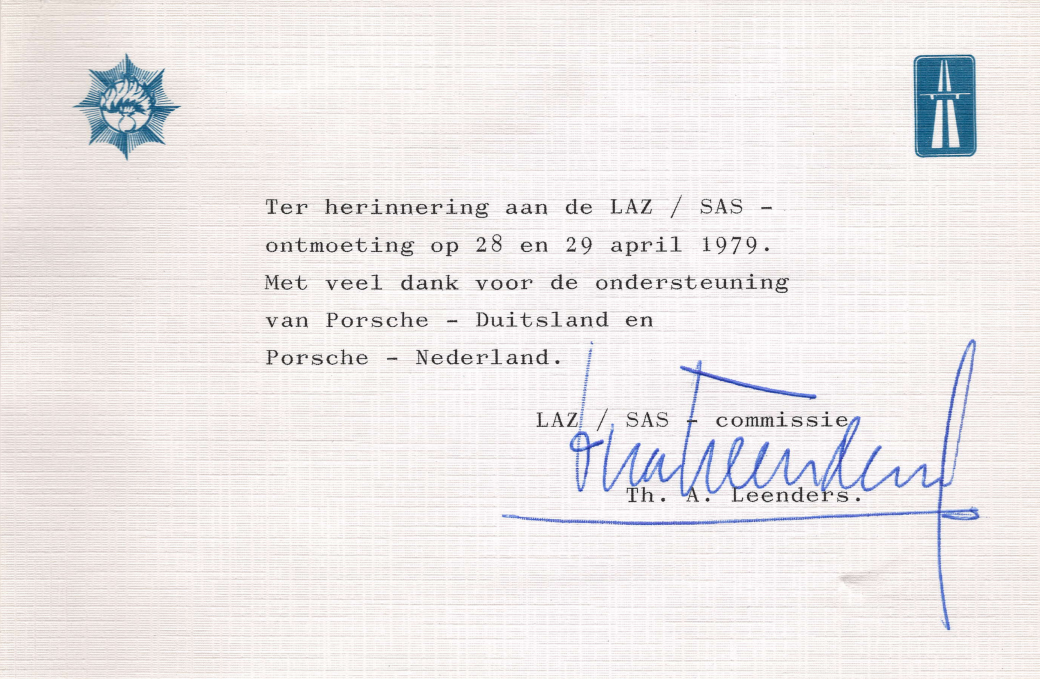 Ter herinnering aan de LAZ / SAS -
ontmoeting op 28 en 29 april 1979.
Met veel dank voor de ondersteuning
van Porsche - Duitsland en
Porsche - Nederland.
LAZ / SAS - commissie
Th. A. Leenders.